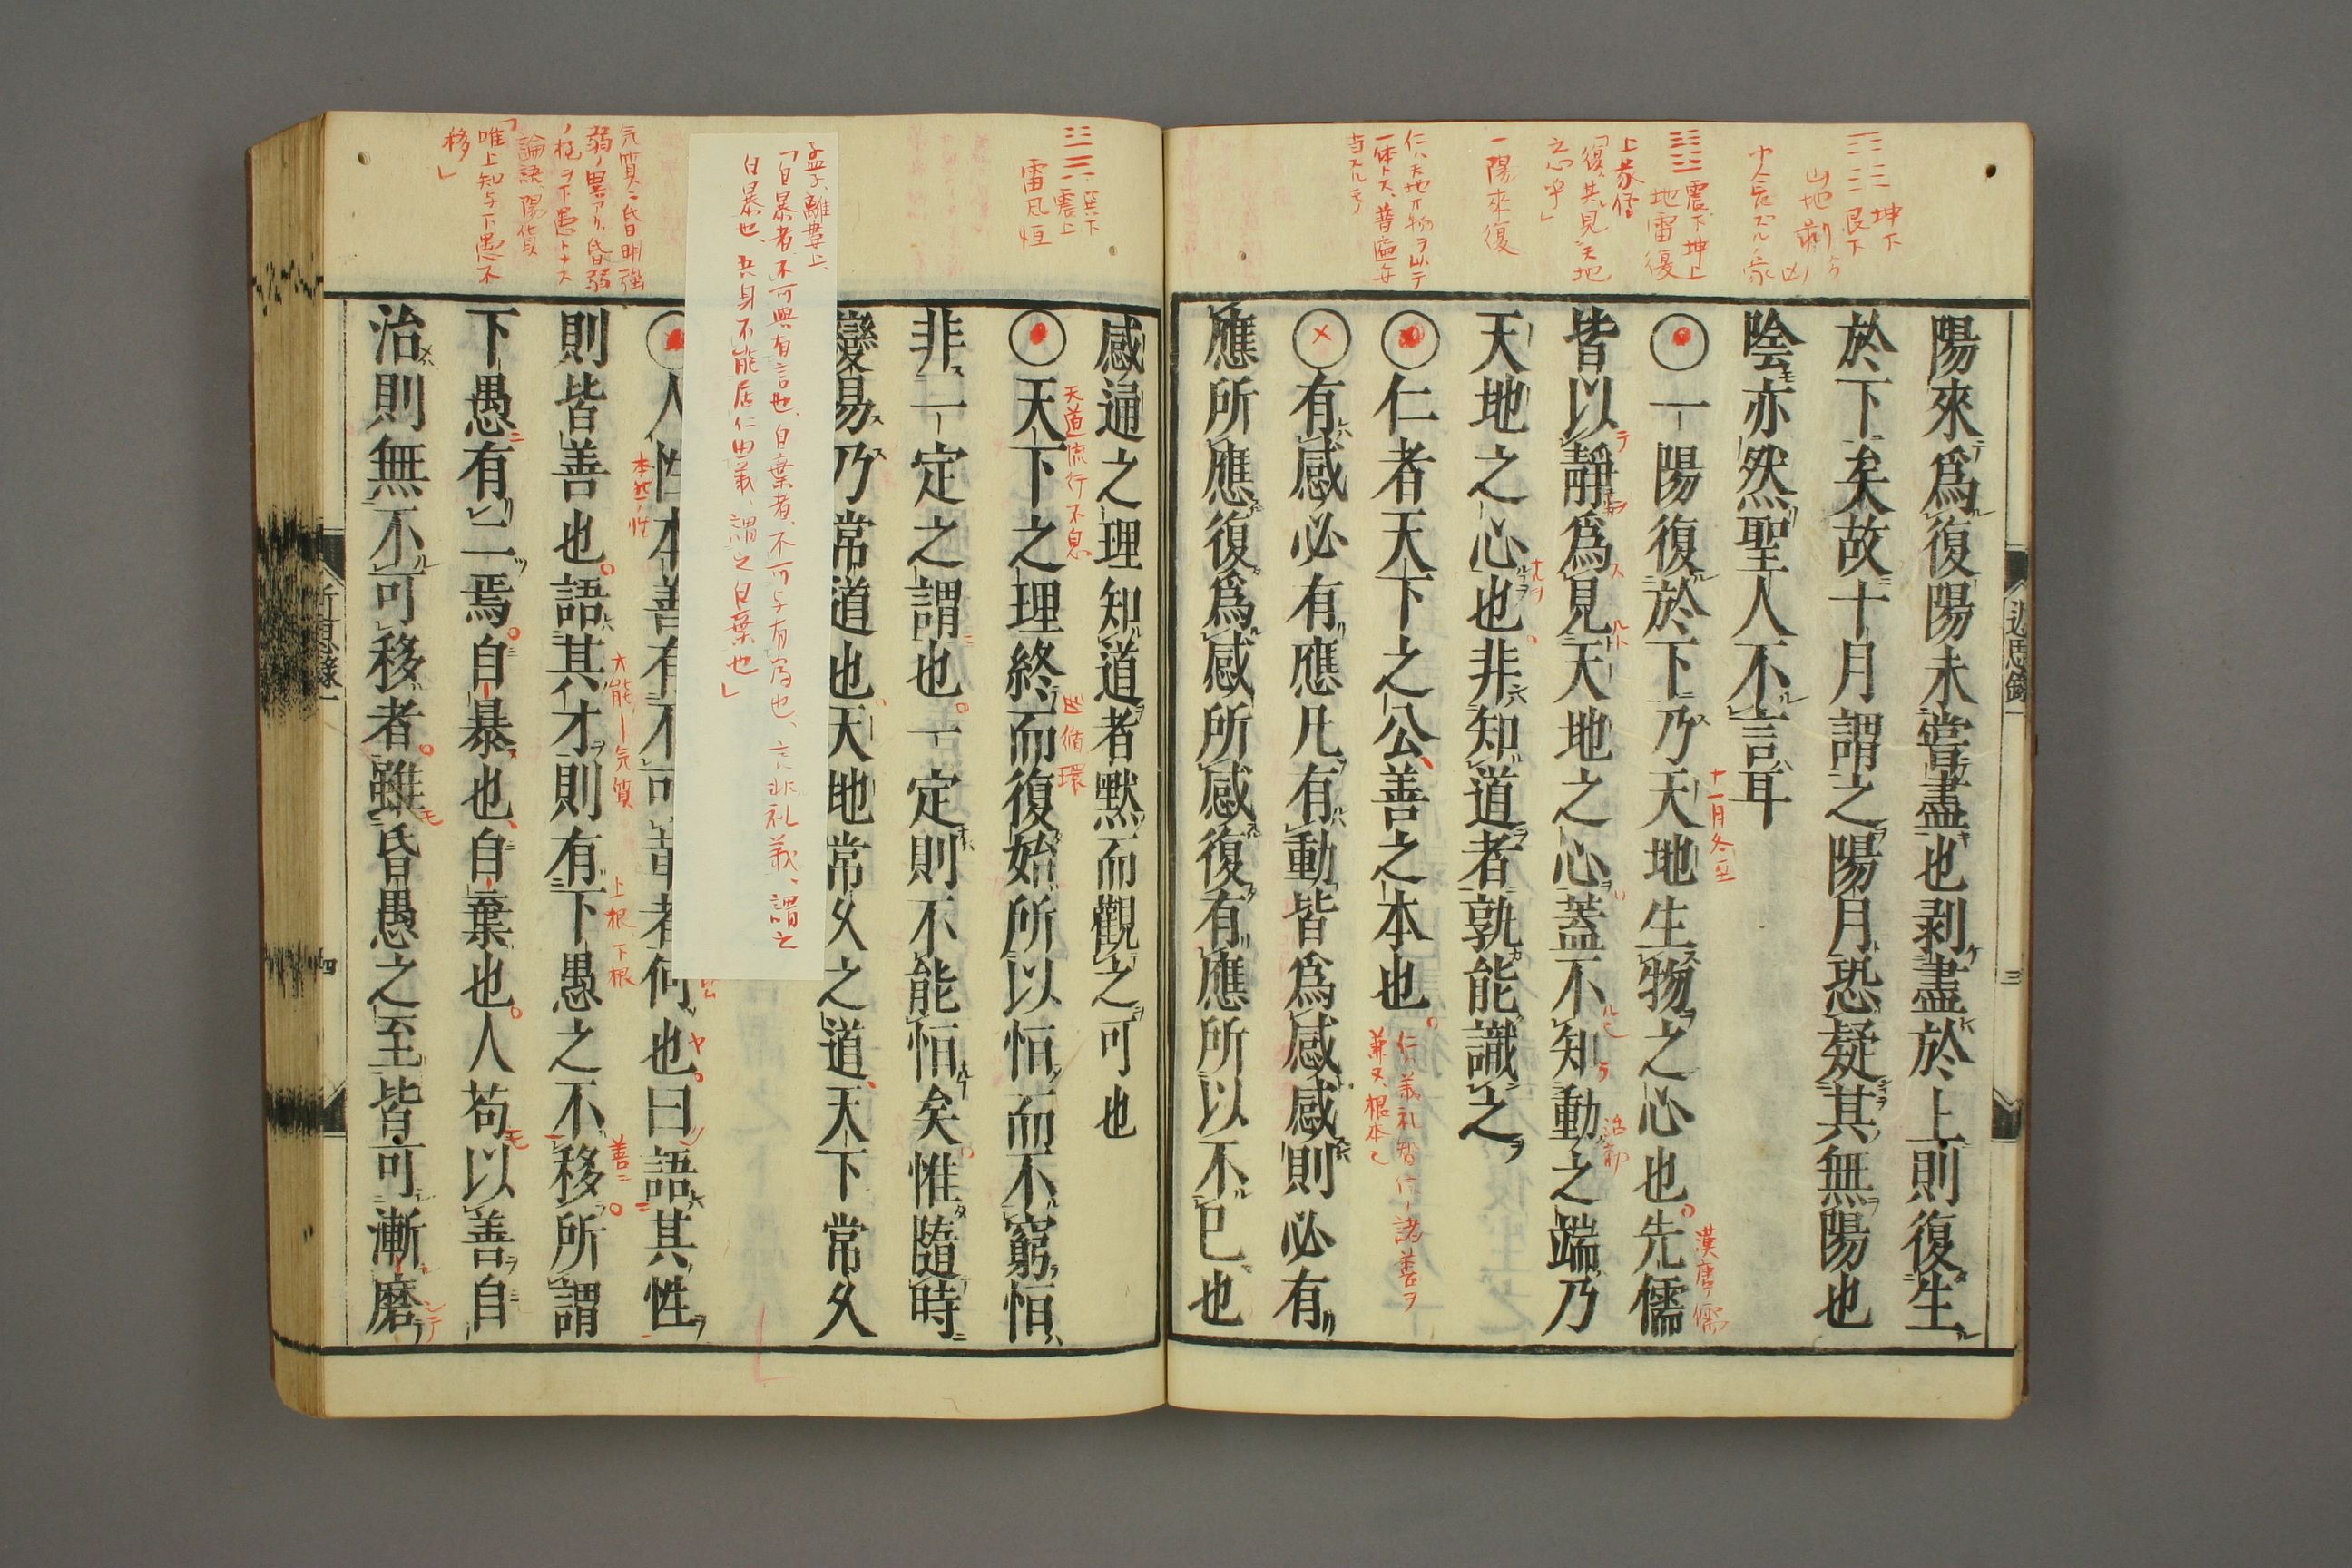 陽來爲復陽未嘗盡也剥盡於上則復生
於下矣故十月謂之陽月恐疑其無陽也
陰亦然聖人不言耳
〇一陽復於下乃天地生物之心也先儒
皆以靜爲見天地之心蓋不知動之端乃
天地之心也非知道者孰能識之
〇仁者天下之公善之本也
〇有感必有應凡有動皆爲感感則必有
應所應復爲感所感復有應所以不已也
感通之理知道者默而觀之可也
〇天下之理終而復始所以恒而不窮恒
非一定之謂也一定則不能恒矣惟隨時
變易乃常道也天地常久之道天下常久
〇人性本善有不可革者何也曰語其性
則皆善也語其才則有下愚之不移所謂
下愚有二焉自暴也自棄也人苟以善自
治則無不可移者雖昏愚之至皆可漸磨
近思錄一
三
四
坤下
艮下
山地剥
震下坤上
地雷復
「復其見天地
之心乎」
一陽來復
仁ハ天地万物ヲ以テ
十一月冬至
漢唐ノ儒
巽下
震上
雷風恒
天道流行不息
循環
孟子、離婁上、
「自暴者、不可與有言也、自棄者、不可与有為也、言非礼義、謂之
自暴也、吾身不能居仁由義、謂之自棄也」
本然ノ性
才能ー気質
上根、下根
気質ニ昏明強
弱ノ異アリ、昏弱
ノ極ヲ下愚トナス
論語、陽貨
「唯上知与下愚不
移」